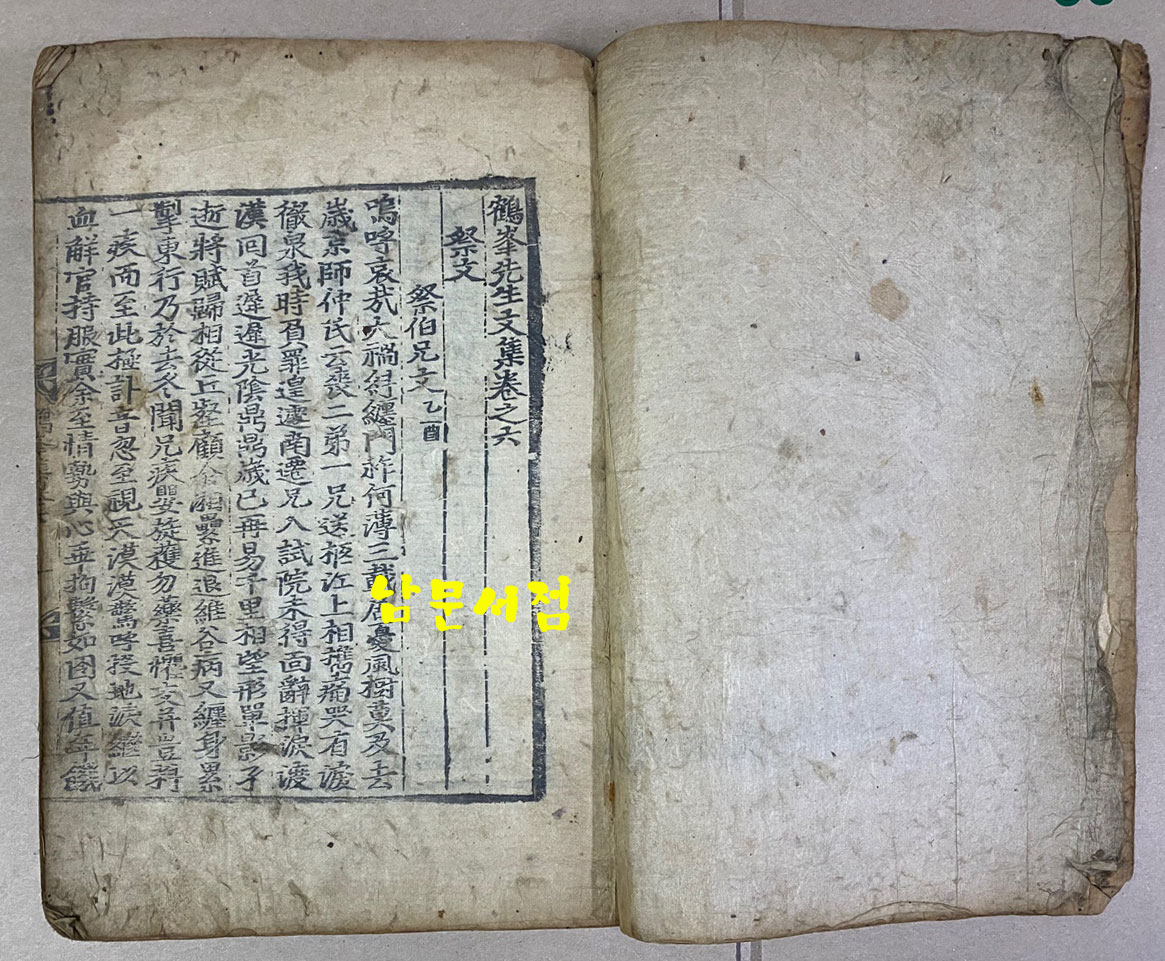 鶴峯先生文集卷之六
祭文
祭伯兄文 乙酉
嗚呼哀哉大禍紏纏門祚何薄三載居憂風樹莫及去
歲京師仲氏云喪二弟一兄送柩江上相携痛哭有淚
徹泉我時負罪遑遽南遷兄入試院未得面辭揮淚渡
漢回首遲遲光陰鼎鼎歲已再易千里相望形單影孑
逝將賦歸相從丘壑顧余湘纍進退維谷病又纏身累
掣東行乃於去冬聞兄疾嬰旋穫勿藥喜懼交并豈料
一疾而至此極訃音忽至視天漠漠驚呼投地淚繼以
血解官持服實余至情勢與心乖拘繫如囹又值年饑
남문서점